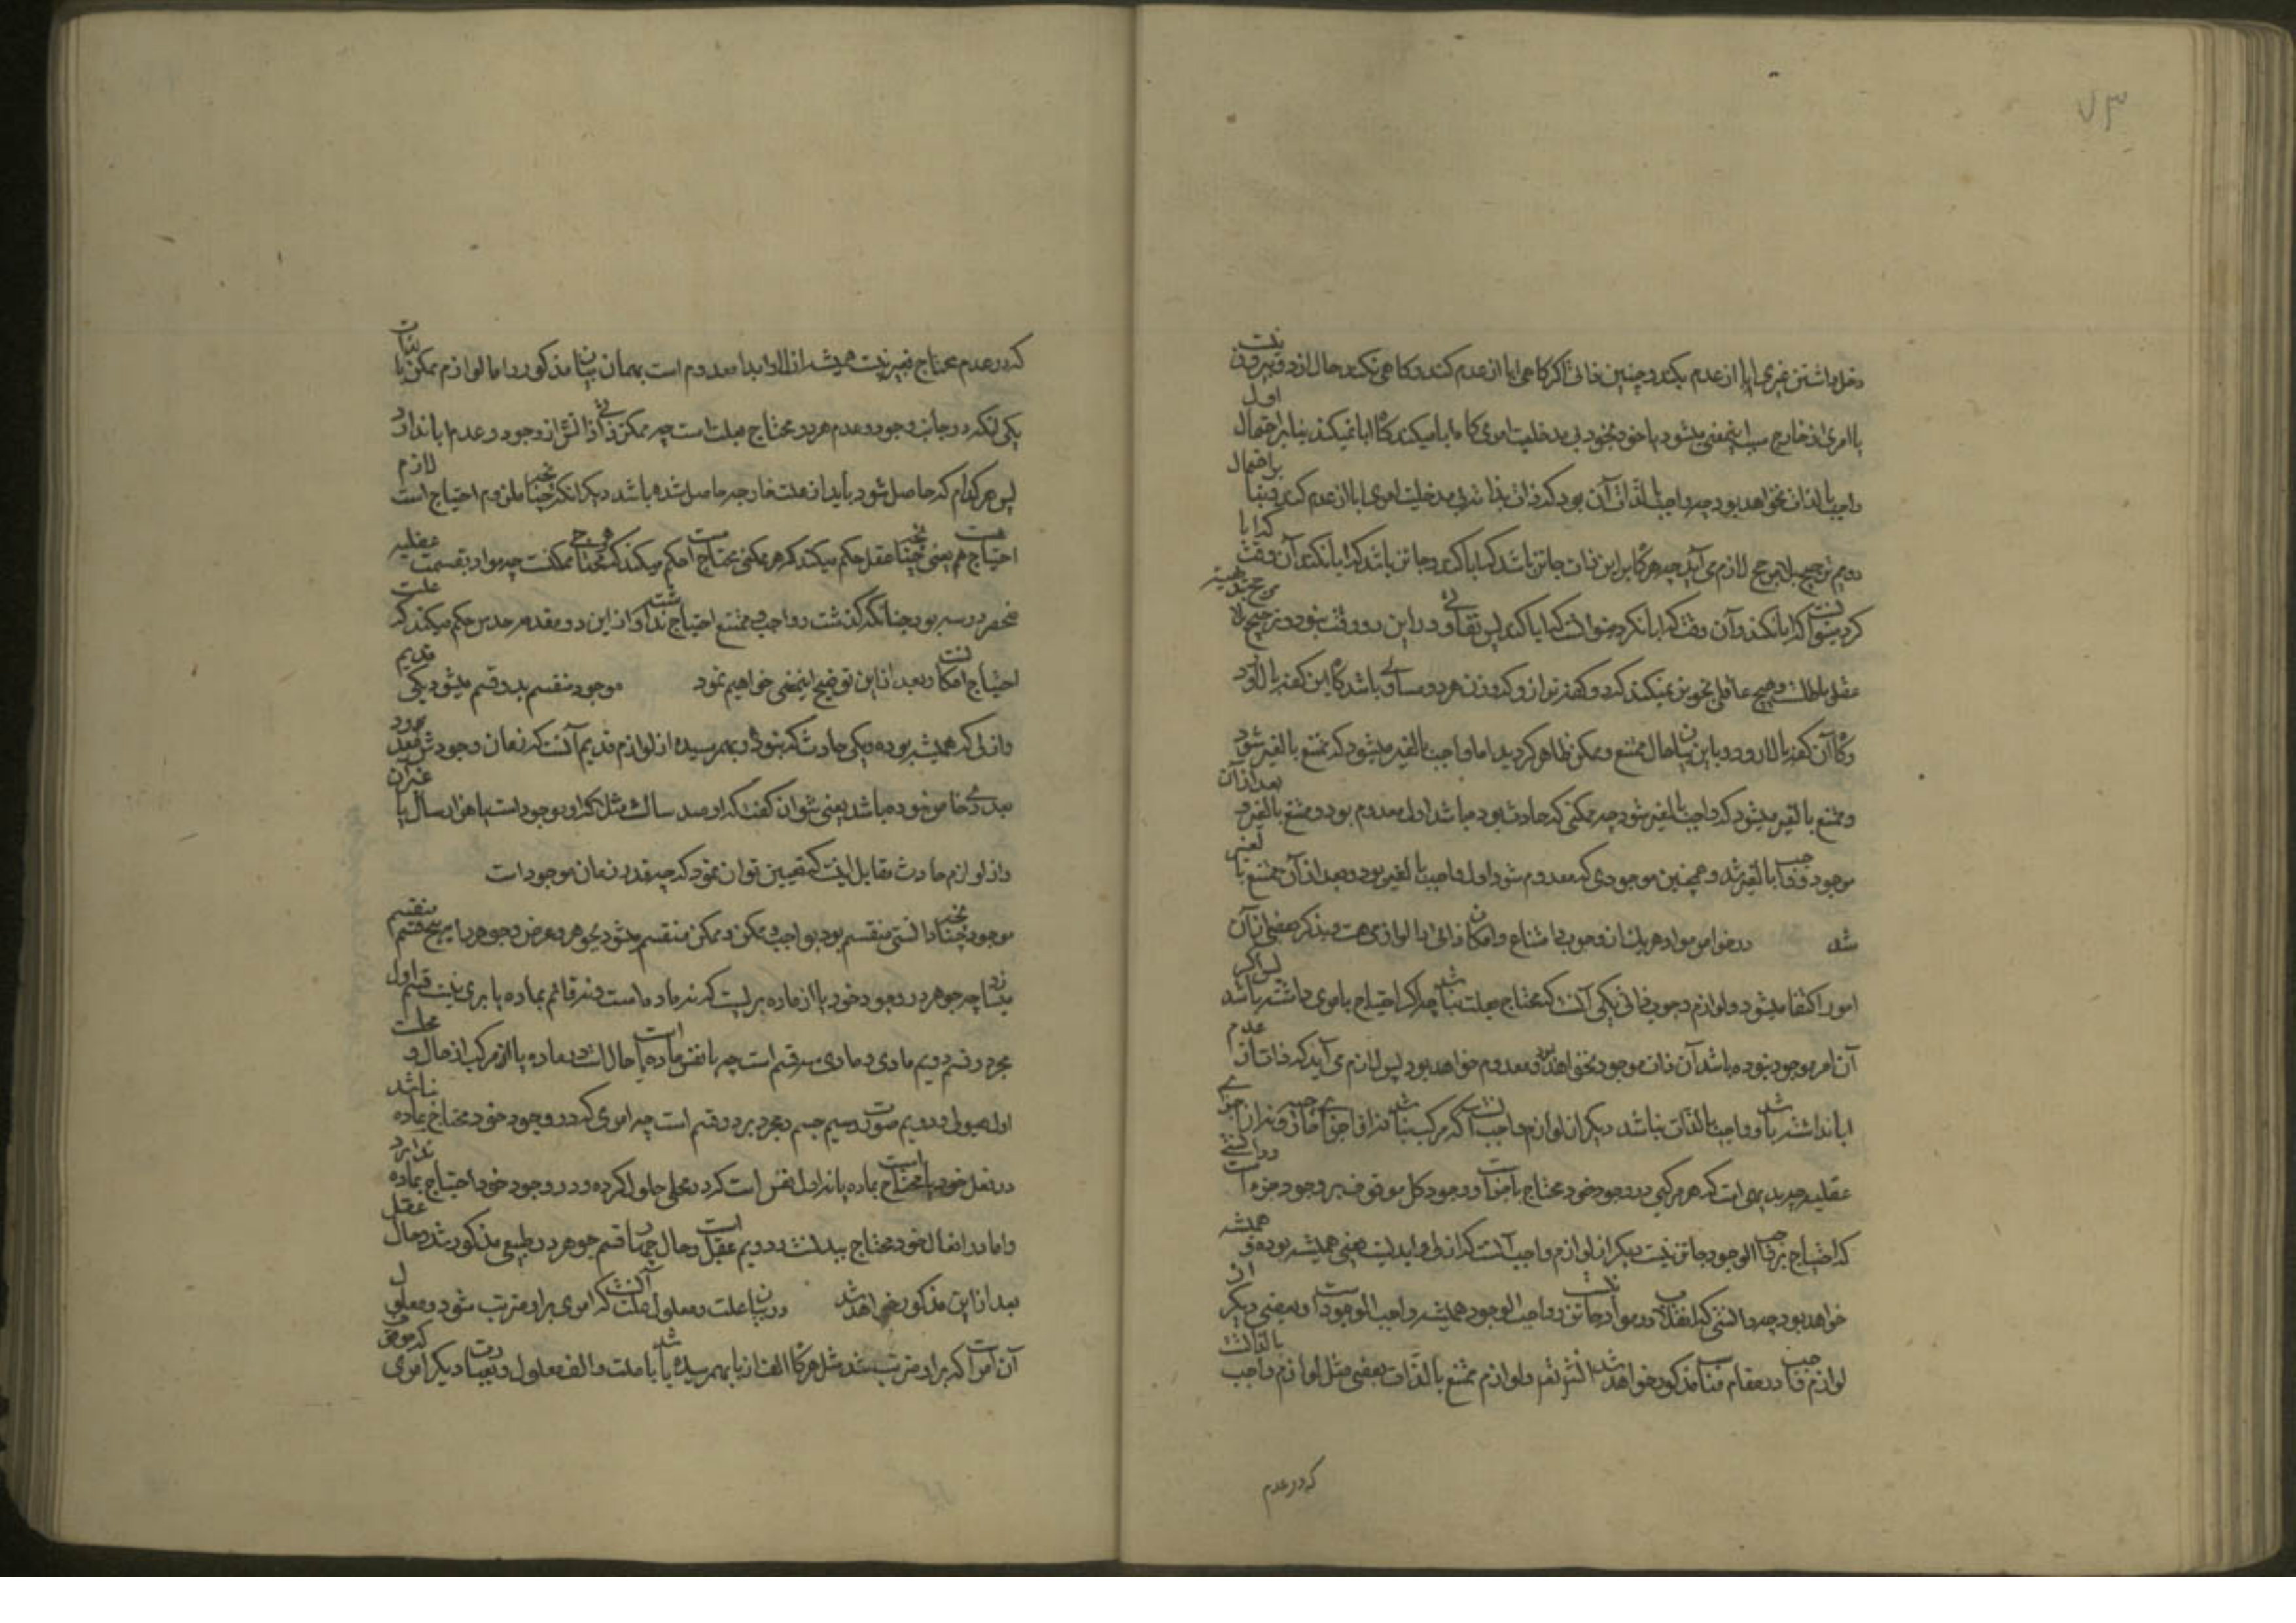 ۷۳
دخل داشتن غیری ابا از عدم بکند و چنین ذاتی اگر کاهی ابا از عدم کند و کاهی نکند حال از دو قسم بیرون نیست
یا امری از خارج سبب اینمعنی میشود یا خود بخود بی مدخلیت امری کاه ابا میکند و کاه ابا نمیکند بنابر احتمال اول
واجب بالذات نخواهد بود چه واجب بالذات آن بود که ذات بذاته بی مدخلیت امری ابا از عدم کند و بنا بر احتمال
دویم ترجیح بلا مرجح لازم می آید چه هر کاه برابر این ذات جایز باشد که ابا کند و جایز باشد که ابا نکند آن وقت که ابا
کرد میتوانست که ابا نکند و آن وقت که ابا نکرد میتوانست که ابا کند پس تفاوتی در این دو وقت نبود و ترجیح بلا مرجح
عقل باطلست و هیچ عاقلی تجویز نمیکند که دو کفه ترازو که وزن هر دو مساوی باشد کاه این کفه بالا رود
و کاه آن کفه بالا رود و باین بیان حال ممتنع و ممکن ظاهر کردید اما واجب بالغیر میشود که ممتنع بالغیر شود
و ممتنع بالغیر میشود که واجب بالغیر شود چه ممکنی که حادث بوده باشد اول معدوم بود و ممتنع بالغیر و بعد از آن
موجود و واجب بالغیر شد و همچنین موجودی که معدوم شود اول واجب بالغیر بود و بعد از آن ممتنع بالغیر
شد در خواص مواد هر یک از وجوب و امتناع و امکان ذاتی را لوازمی هست و بذکر بعضی از آن
امور اکتفا میشود و لوازم وجوب ذاتی یکی آنست که محتاج بعلت نباشد چه اگر احتیاج بامری داشته باشد پس اگر
آن امر موجود نبوده باشد آن ذات موجود نخواهد بود و معدوم خواهد بود پس لازم می آید که ذات از عدم
ابا نداشته باشد و واجب بالذات نباشد دیکر از لوازم واجب آنست که مرکب نباشد نه از اجزای خارجیه و نه از اجزای
عقلیه چه بدیهی است که هر مرکبی در وجود خود محتاج باجزاست و وجود کل موقوف بر وجود جزء است و دانستی
که احتیاج بر واجب الوجود جایز نیست دیکر از لوازم واجب آنست که ازلی و ابدیست یعنی همیشه بوده و همیشه
خواهد بود چه دانستی که انقلاب در مواد جایز نیست و واجب الوجود همیشه واجب الوجود است و بعضی دیکر از
لوازم واجب در مقام مناسب مذکور خواهد شد انشر تعه و لوازم ممتنع بالذات بعضی مثل لوازم واجب بالذاتست
که در عدم
که در عدم محتاج بغیر نیست همیشه ازلا و ابدا معدوم است بهمان بیان مذکور و اما لوازم ممکن بالذات
یکی آنکه در جانب وجود و عدم هر دو محتاج بعلت است چه ممکن ذاتی ذاتش از وجود و عدم ابا ندارد
پس هر کدام که حاصل شود باید از علت خارجه حاصل شده باشد دیکر آنکه چنانچه ملزوم احتیاج است لازم
احتیاج هم هست یعنی چنانچه عقل حکم میکند که هر ممکنی محتاج است حکم میکند که هر محتاجی ممکنست چه مواد بقسمت عقلیه
منحصر در سه بود چنانکه کذشت و واجب و ممتنع احتیاج نداشت و از این دو مقدمه حدس حکم میکند که علت
احتیاج امکانست و بعد از این توضیح اینمعنی خواهیم نمود موجود منقسم بدو قسم میشود یکی قدیم
و ازلی که همیشه بوده و یکی حادث که نبوده و بهم رسیده از لوازم قدیم آنست که زمان وجودش معدود
بعددی خاص نبوده باشد یعنی نتوان کفت که او صد سال است مثلا که او موجود است یا هزار سال یا غیر آن
و از لوازم حادث مقابل اینست که تعیین توان نمود که چه قدر زمان موجود است
موجود چنانچه دانستی منقسم بود بواجب و ممکن و ممکن منقسم میشود بجوهر و عرض و جوهر را به پنج قسم منقسم
میسازد چه جوهر در وجود خود یا از ماده بریست که نه ماده است و نه قائم بماده یا بری نیست قسم اول
مجرد و قسم دویم مادی و مادی سه قسم است چه یا نفس ماده است یا حال است در ماده یا از مرکب از حال و محلست
اول هیولی و دویم صورت و سیم جسم و مجرد بر دو قسم است چه امری که در وجود خود محتاج بماده نباشد
در فعل خود یا محتاج است بماده یا نه اول نفس است که در محلی حلول نکرده و در وجود خود احتیاج بماده ندارد
و اما در افعال خود محتاج ببدنست و دویم عقل است و حال جمیع اقسام جوهر در طبیعی مذکور شد و حال عقل
بعد از این مذکور خواهد شد در بیان علت و معلول علت آنست که امری بر او مترتب شود و معلول
آن امر است که بر او مترتب شد مثل هر کاه الف از با بهم رسیده باشد با علت و الف معلول و بعبارت دیکر امری که موقوف